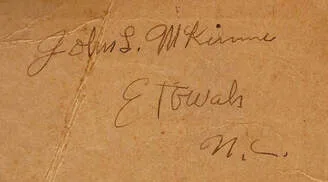 John L. McKinne
Etowah
N.C.